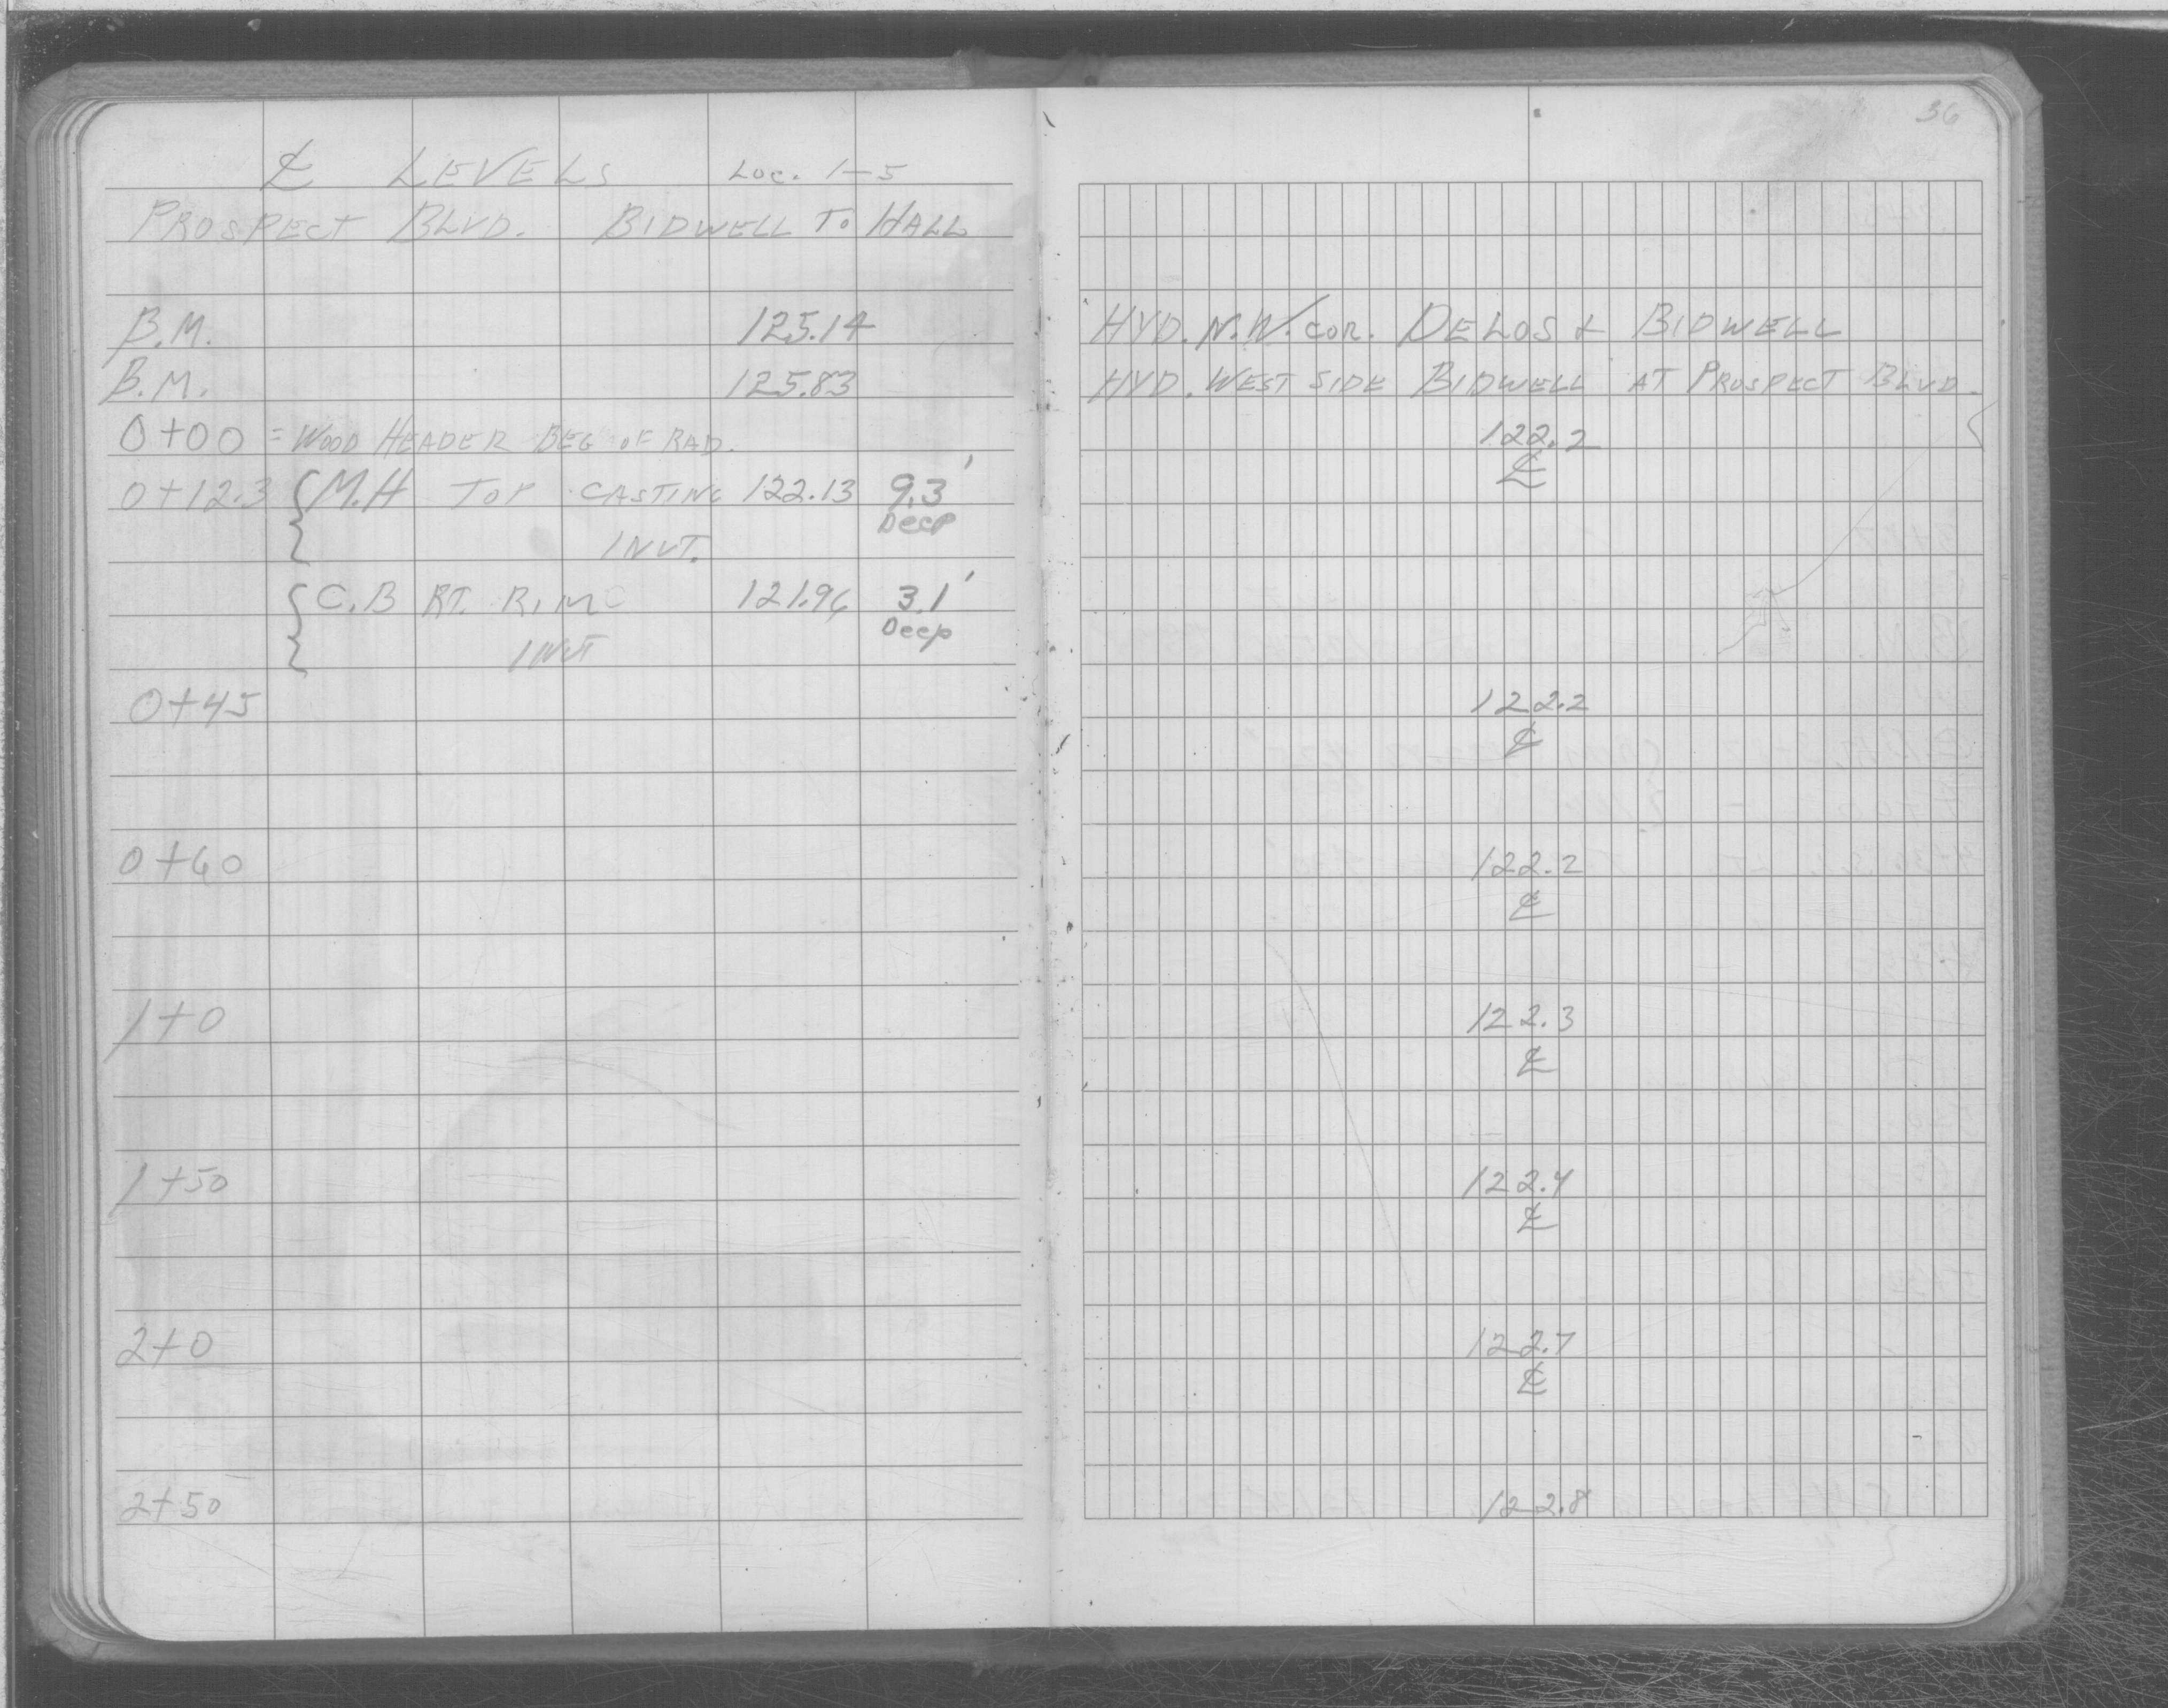 36
℄ LEVELS LOC. 1-5
PROSPECT BLVD. BIDWELL TO HALL
B.M. 125.14 HYD. N.W. COR. DELOS & BIDWELL
B.M. 125.83 HYD. WEST SIDE BIDWELL AT PROSPECT BLVD.
0+00 = WOOD HEADER BEG OF RAD. 122.2
℄
0+12.3 { M.H TOP CASTING 122.13 9.3'
Deep
INVT.
{ C.B RT. RIM 121.96 3.1'
Deep
INVT
0+45 122.2
℄
0+60 122.2
℄
1+0 122.3
℄
1+50 122.4
℄
2+0 122.7
℄
2+50 122.8